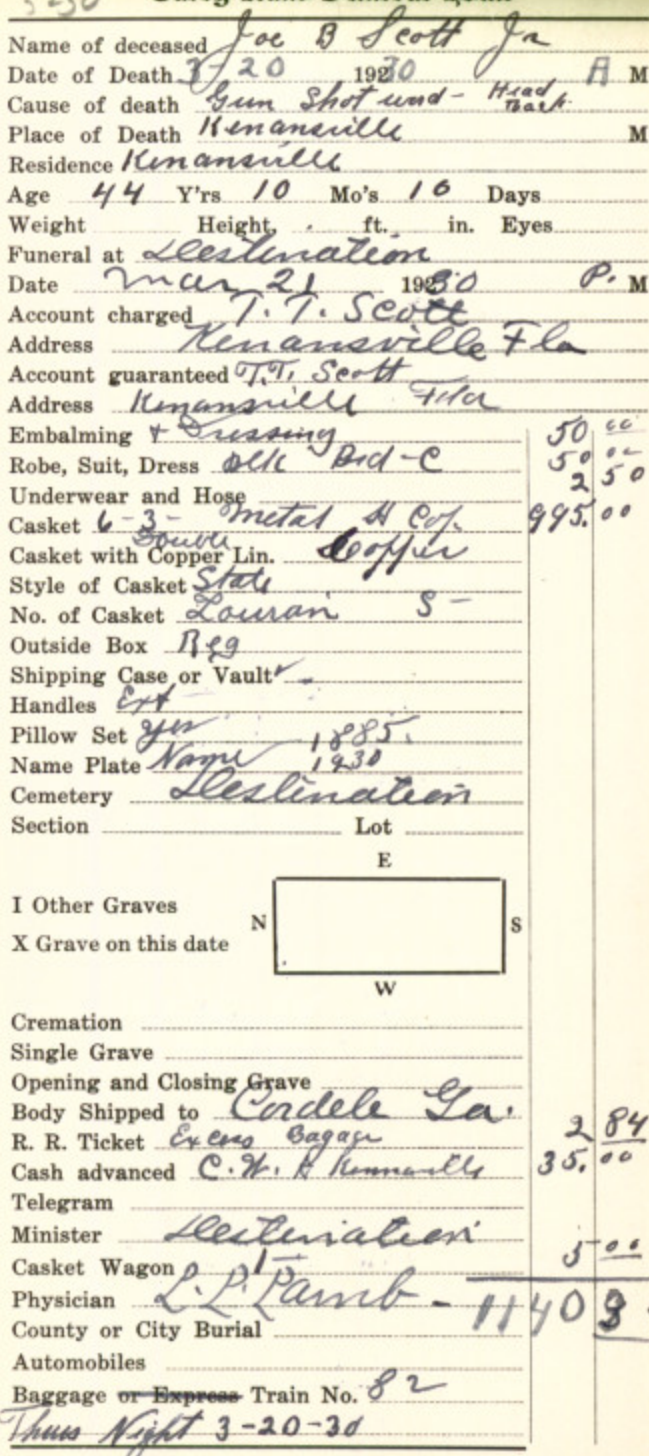 3-30
Name of deceased Joe B Scott Jr
Date of Death 3-20 1930 A M
Cause of death Gun Shot wond - Head Back
Place of Death Kenansville M
Residence Kenansville
Age 44 Y'rs 10 Mo's 10 Days
Weight Height, ft. in. Eyes
Funeral at Destination
Date Mar 21 1930 P. M
Account charged T. T. Scott
Address Kenansville Fla
Account guaranteed T.T. Scott
Address Kenansville Fla
Embalming + Dressing 50 00
Robe, Suit, Dress Blk Brd-C 50 00
Underwear and Hose 2 50
Casket 6-3- Metal 995.00
Double
Casket with Copper Lin. Copper
Style of Casket State
No. of Casket S -
Outside Box Reg
Shipping Case or Vault
Handles Ext
Pillow Set yes 1885.
Name Plate Name 1930
Cemetery Destination
Section Lot
E
I Other Graves
N S
X Grave on this date
W
Cremation
Single Grave
Opening and Closing Grave
Body Shipped to Cordele Ga.
R. R. Ticket Excess Bagage 2 84
Cash advanced C. W. 35.00
Telegram
Minister Destination
Casket Wagon 1 5 00
Physician L. P. Lamb - 1140 3
County or City Burial
Automobiles
Baggage or Express Train No. 82
Thurs Night 3-20-30